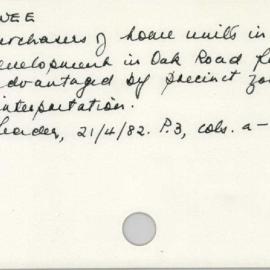 WEE
urchasers of home units in
evelopment in Oak Road
dvantaged by precinct zon
interpretation.
eader, 21/4/82. P.3, cols. a-